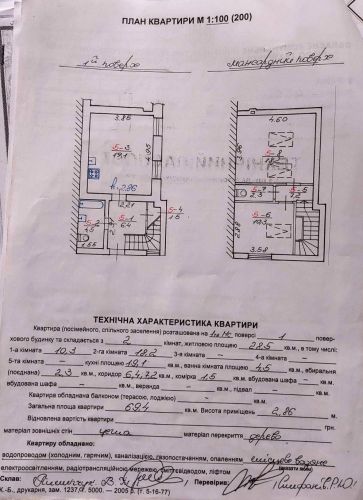 ПЛАН КВАРТИРИ М 1:100 (200)
1й поверх
мансардний поверх
3.85
4.60
5-3
19.1
5-8
h=2.86
5-7
2.3
5-5
7.2
2.21
5-4
1.5
5-1
6.4
5-2
4.5
5-6
1.65
2.88
3.58
ТЕХНІЧНА ХАРАКТЕРИСТИКА КВАРТИРИ
Квартира (посімейного, спільного заселення) розташована на поверсі 1 повер-
хового будинку та складається з 2 кімнат, житловою площею 28.5 кв.м, в тому числі:
1-а кімната 10.3 2-га кімната 18.2 3-я кімната – 4-а кімната –
5-та кімната – кв.м, кухні 19.1 кв.м, ванна кімната 4.5 кв.м, вбиральня
(поєднана) 2.3 кв.м, коридор 6.4, 7.2 кв.м, комірка 1.5 кв.м, вбудована шафа – кв.м,
вбудована шафа – кв.м, веранда – кв.м, підвал – кв.м.
Квартира обладнана балконом (терасою, лоджією) – кв.м.
Загальна площа квартири 69.4 кв.м. Висота приміщень 2.86 м.
Відновлена вартість квартири
матеріал зовнішніх стін цегла матеріал перекриття дерево
Квартиру обладнано:
водопроводом (холодним, гарячим), каналізацією, газопостачанням, опаленням місцеве водяне
електроосвітленям, радіотрансляційною мережею, сміттєпроводом, ліфтом
Склав: Перевірив:
К.-Б., друкарня, зам. 1237, ф. 5000. – 2005 р. (т. 5-16-77)